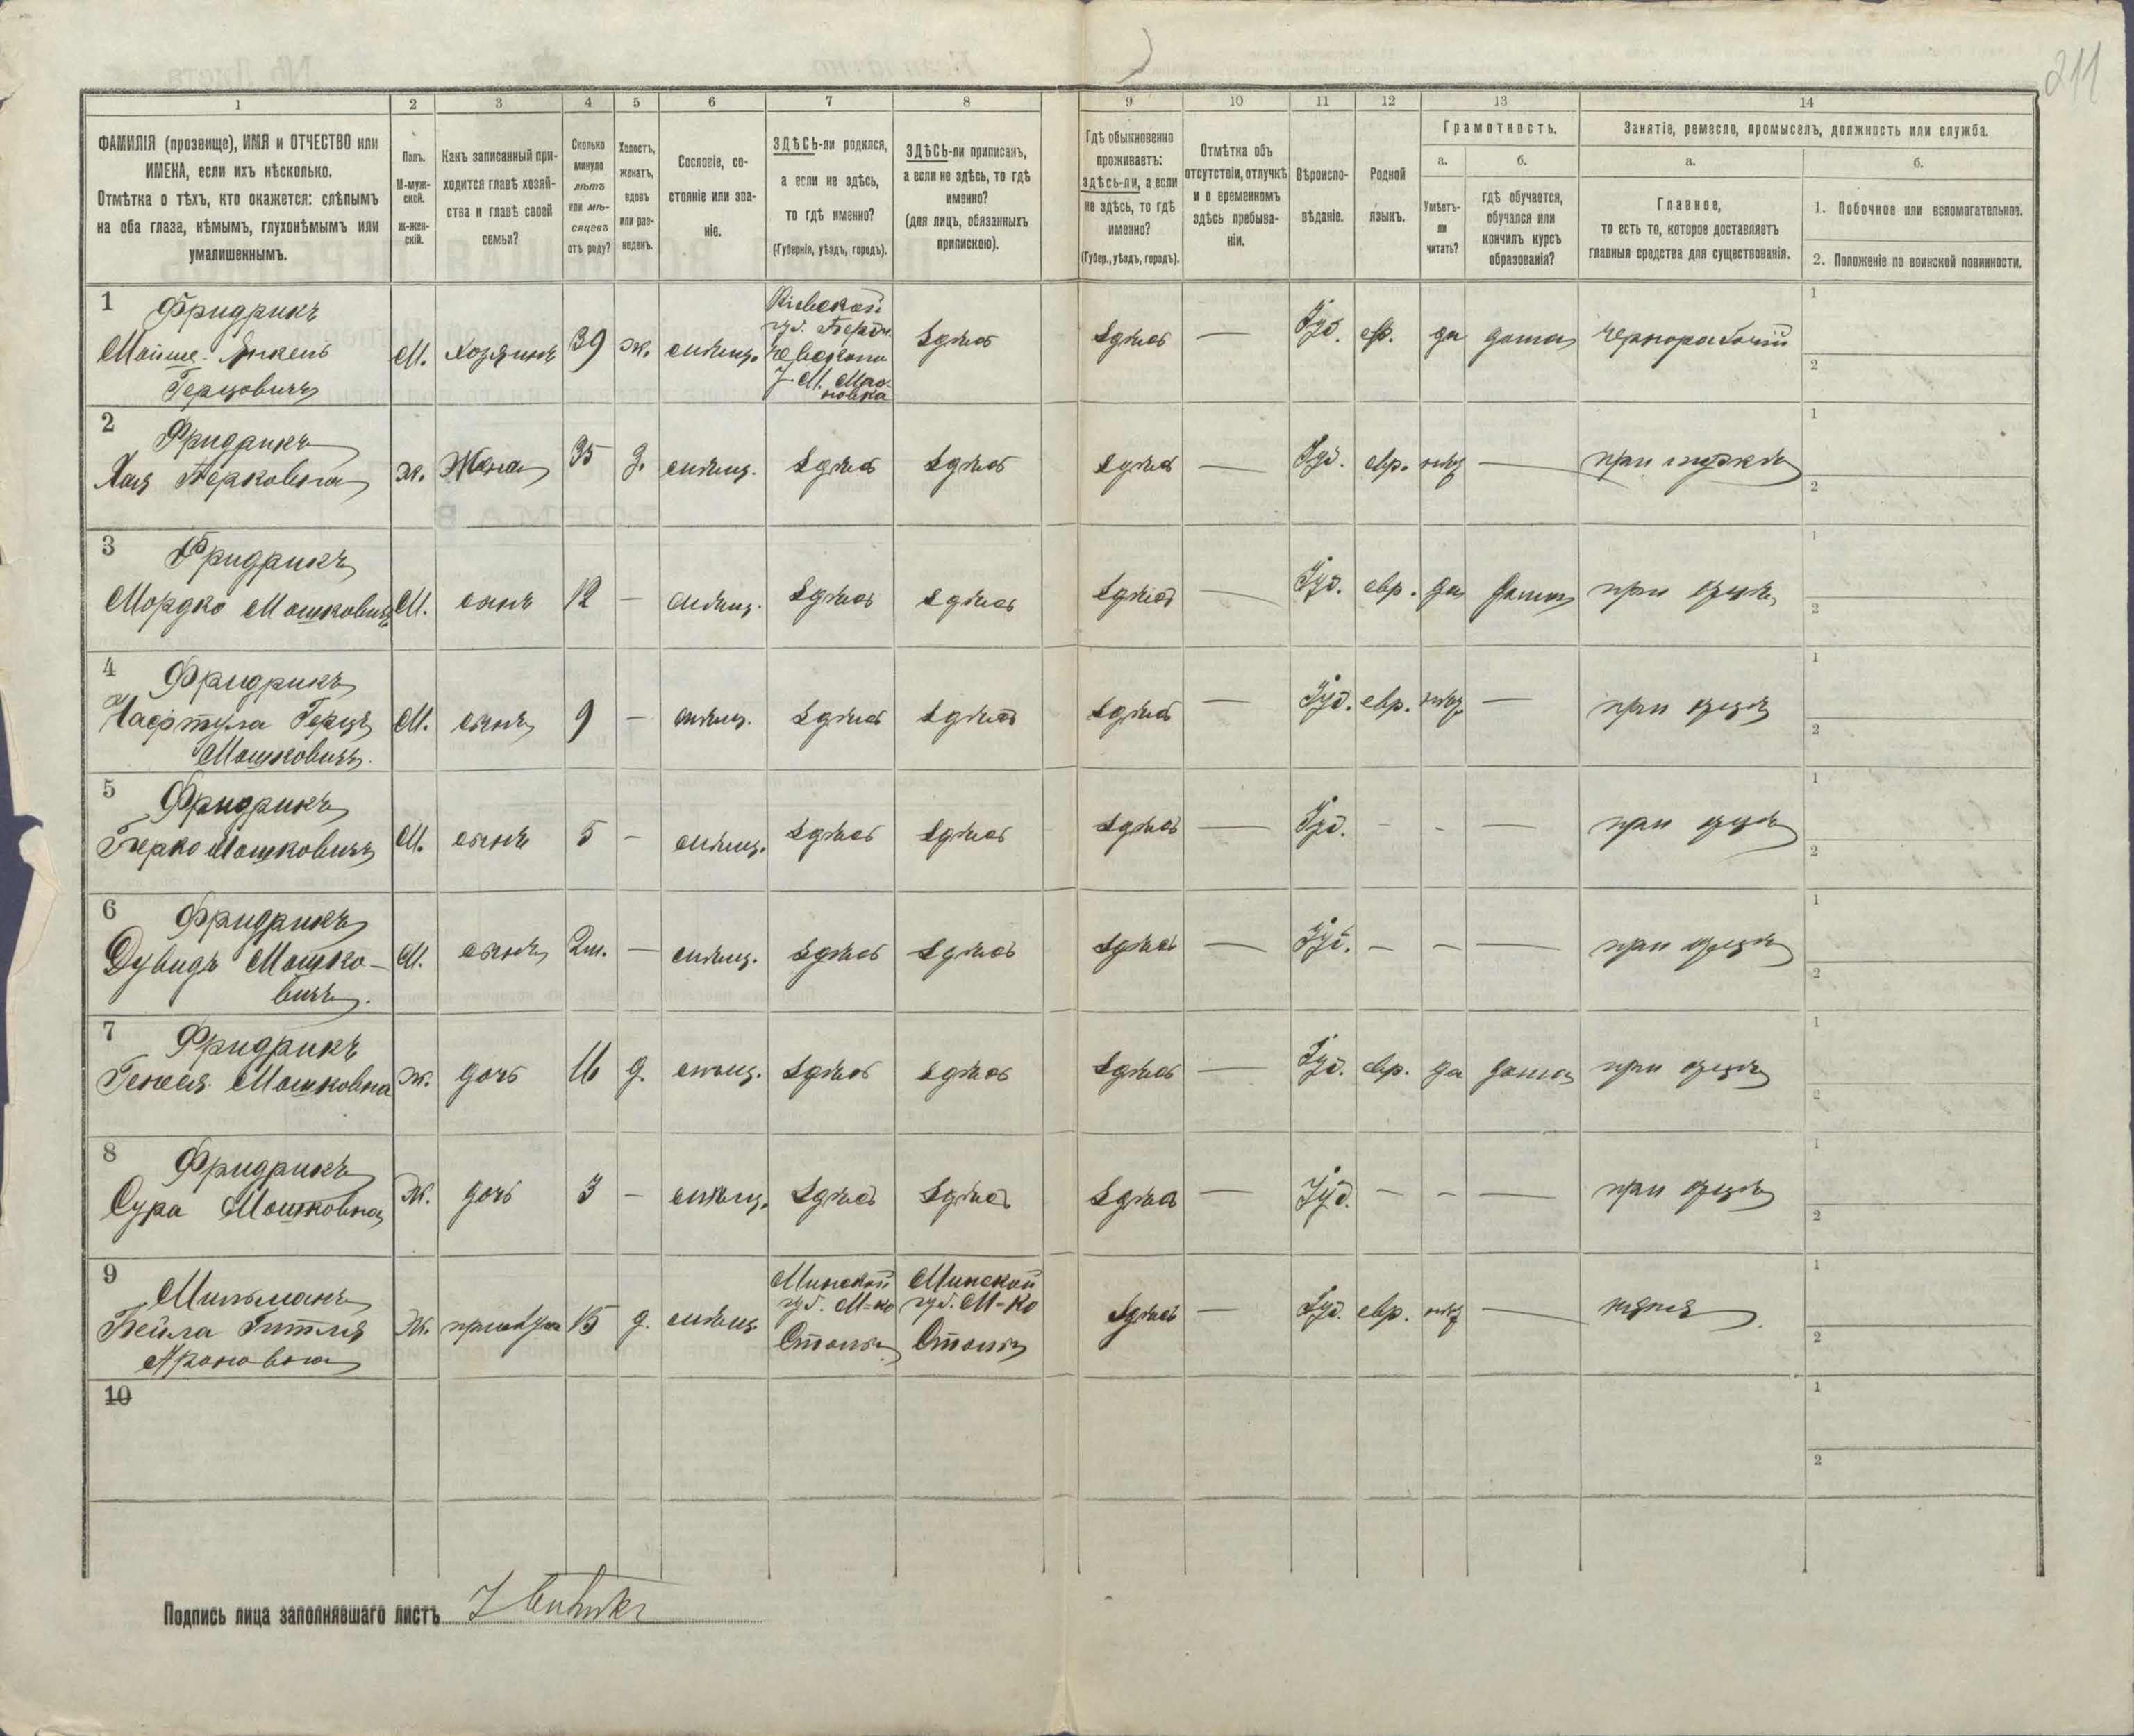 211
1 2 3 4 5 6 7 8 9 10 11 12 13 14
ФАМИЛІЯ (прозвище), ИМЯ и ОТЧЕСТВО или
ИМЕНА, если ихъ нѣсколько.
Отмѣтка о тѣхъ, кто окажется: слѣпымъ
на оба глаза, нѣмымъ, глухонѣмымъ или
умалишеннымъ.
Полъ.
М-муж-
ской.
ж-жен-
скій.
Какъ записанный при-
ходится главѣ хозяй-
ства и главѣ своей
семьи?
Сколько
минуло
лѣтъ
или мѣ-
сяцевъ
отъ роду?
Холостъ,
женатъ,
вдовъ
или раз-
веденъ.
Сословіе, со-
стояніе или зва-
ніе.
ЗДѢСЬ-ли родился,
а если не здѣсь,
то гдѣ именно?
(Губернія, уѣздъ, городъ).
ЗДѢСЬ-ли приписанъ,
а если не здѣсь, то гдѣ
именно?
(для лицъ, обязанныхъ
припискою).
Гдѣ обыкновенно
проживаетъ:
здѣсь-ли, а если
не здѣсь, то гдѣ
именно?
(Губер., уѣздъ, городъ).
Отмѣтка объ
отсутствіи, отлучкѣ
и о временномъ
здѣсь пребыва-
ніи.
Вѣроиспо-
вѣданіе.
Родной
языкъ.
Грамотность.
а.
Умѣетъ-
ли
читать?
б.
гдѣ обучается,
обучался или
кончилъ курсъ
образованія?
Занятіе, ремесло, промыселъ, должность или служба.
а.
Главное,
то есть то, которое доставляетъ
главныя средства для существованія.
б.
1. Побочное или вспомогательное.
2. Положеніе по воинской повинности.
1 Фридрикъ
Мойше-Янкель
Герцовичъ
М. хозяинъ 39 ж. мѣщ.
Кіевской
губ. Берди-
чевскаго
у. М. Мах-
новка
здѣсь здѣсь — Іуд. евр. да дома чернорабочій
1
2
2 Фридрикъ
Хая Берковна
ж. Жена 35 з. мѣщ. здѣсь здѣсь здѣсь — Іуд. евр. нѣт — при мужѣ
1
2
3 Фридрикъ
Мордко Мошковичъ
М. сынъ 12 — мѣщ. здѣсь здѣсь здѣсь — Іуд. евр. да дома при отцѣ
1
2
4 Фридрикъ
Нафтула Герцъ
Мошковичъ.
М. сынъ 9 — мѣщ. здѣсь здѣсь здѣсь — Іуд. евр. нѣт — при отцѣ
1
2
5 Фридрикъ
Берко Мошковичъ
М. сынъ 5 — мѣщ. здѣсь здѣсь здѣсь — Іуд. - - — при отцѣ
1
2
6 Фридрикъ
Дувидъ Мошко-
вичъ.
М. сынъ 2м. — мѣщ. здѣсь здѣсь здѣсь — Іуд. — — — при отцѣ
1
2
7 Фридрикъ
Генеся Мошковна
ж. дочь 16 д. мѣщ. здѣсь здѣсь здѣсь — Іуд. евр. да дома при отцѣ
1
2
8 Фридрикъ
Сура Мошковна
ж. дочь 3 — мѣщ. здѣсь здѣсь здѣсь — Іуд. — - — при отцѣ
1
2
9 Мильманъ
Бейла Гитля
Ароновна
Ж. прислуга 15 д. мѣщ.
Минской
губ. М-ко
Столин
Минской
губ. М-ко
Столин
здѣсь — Іуд. евр. нѣт — няня
1
2
10
1
2
Подпись лица заполнявшаго листъ